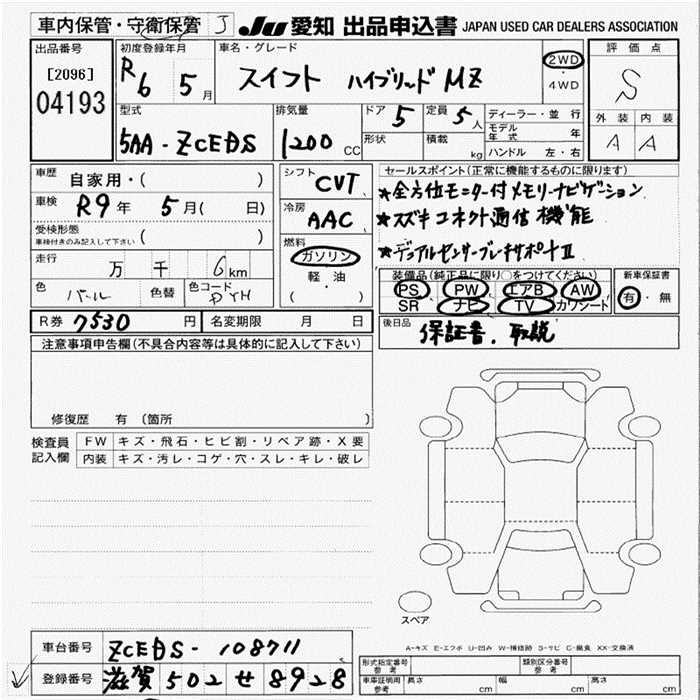 車内保管・守衛保管 J JU 愛知 出品申込書 JAPAN USED CAR DEALERS ASSOCIATION
出品番号
[2096]
04193
初度登録年月
R6 5月
車名・グレード
スイフト ハイブリッド MZ
2WD
・
4WD
評価点
S
外装 内装
A A
型式
5AA-ZCEDS
排気量
1200 CC
ドア 5
形状
定員 5人
積載 kg
ディーラー・並行
モデル年式 年
ハンドル 左・右
車歴 自家用・( )
車検 R9年 5月( 日)
受検形態
車検付きのみ記入して下さい ( )
走行 万 千 6km
色 パール 色替 色コード
シフト CVT
冷房 AAC
燃料
ガソリン
軽・油
( )
セールスポイント(正常に機能するものに限ります)
★全方位モニター付メモリーナビゲーション
★スズキコネクト通信機能
★デュアルセンサーブレーキサポートII
装備品(純正品に限り○をつけてください)
PS PW エアB AW
SR ナビ TV カワシート
新車保証書
有・無
R券 7530円 名変期限 月 日
後日品 保証書、取説
注意事項申告欄(不具合内容等は具体的に記入して下さい)
修復歴 有 (箇所 )
検査員記入欄
FW キズ・飛石・ヒビ割・リペア跡・X要
内装 キズ・汚レ・コゲ・穴・スレ・キレ・破レ
スペア
A-キズ E-エクボ U-凹み W-補修跡 S-サビ C-腐食 XX-交換済
車台番号 ZCEDS-108711
登録番号 滋賀 502 せ 8928
形式指定番号
参考
類別区分番号
参考
車庫証明用
参考
長さ cm 幅 cm 高さ cm